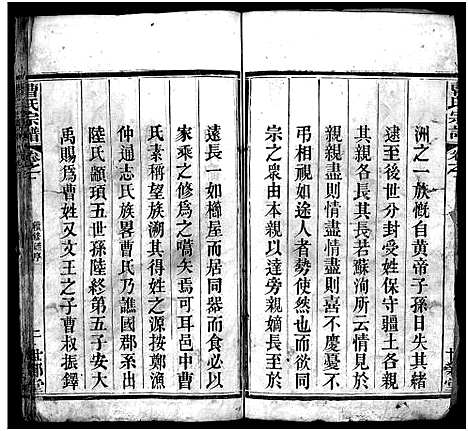 洲之一族慨自黃帝子孫日失其緒
逮至後世分封受姓保守疆土各親
其親各長其長若蘇洵所云情見於
親親盡則情盡情盡則喜不慶憂不
弔相視如途人者勢使然也而欲同
宗之眾由本親以達旁親嫡長至
遠長一如櫛屋而居同器而食必以
家乘之修為之嚆矢焉可耳邑中曹
氏素稱望族溯其得姓之源按鄭漁
仲通志氏族畧曹氏乃譙國郡系出
陸氏顓頊五世孫陸終第五子安大
禹賜爲曹姓又文王之子曹叔振鐸
曹氏宗譜
卷之
二